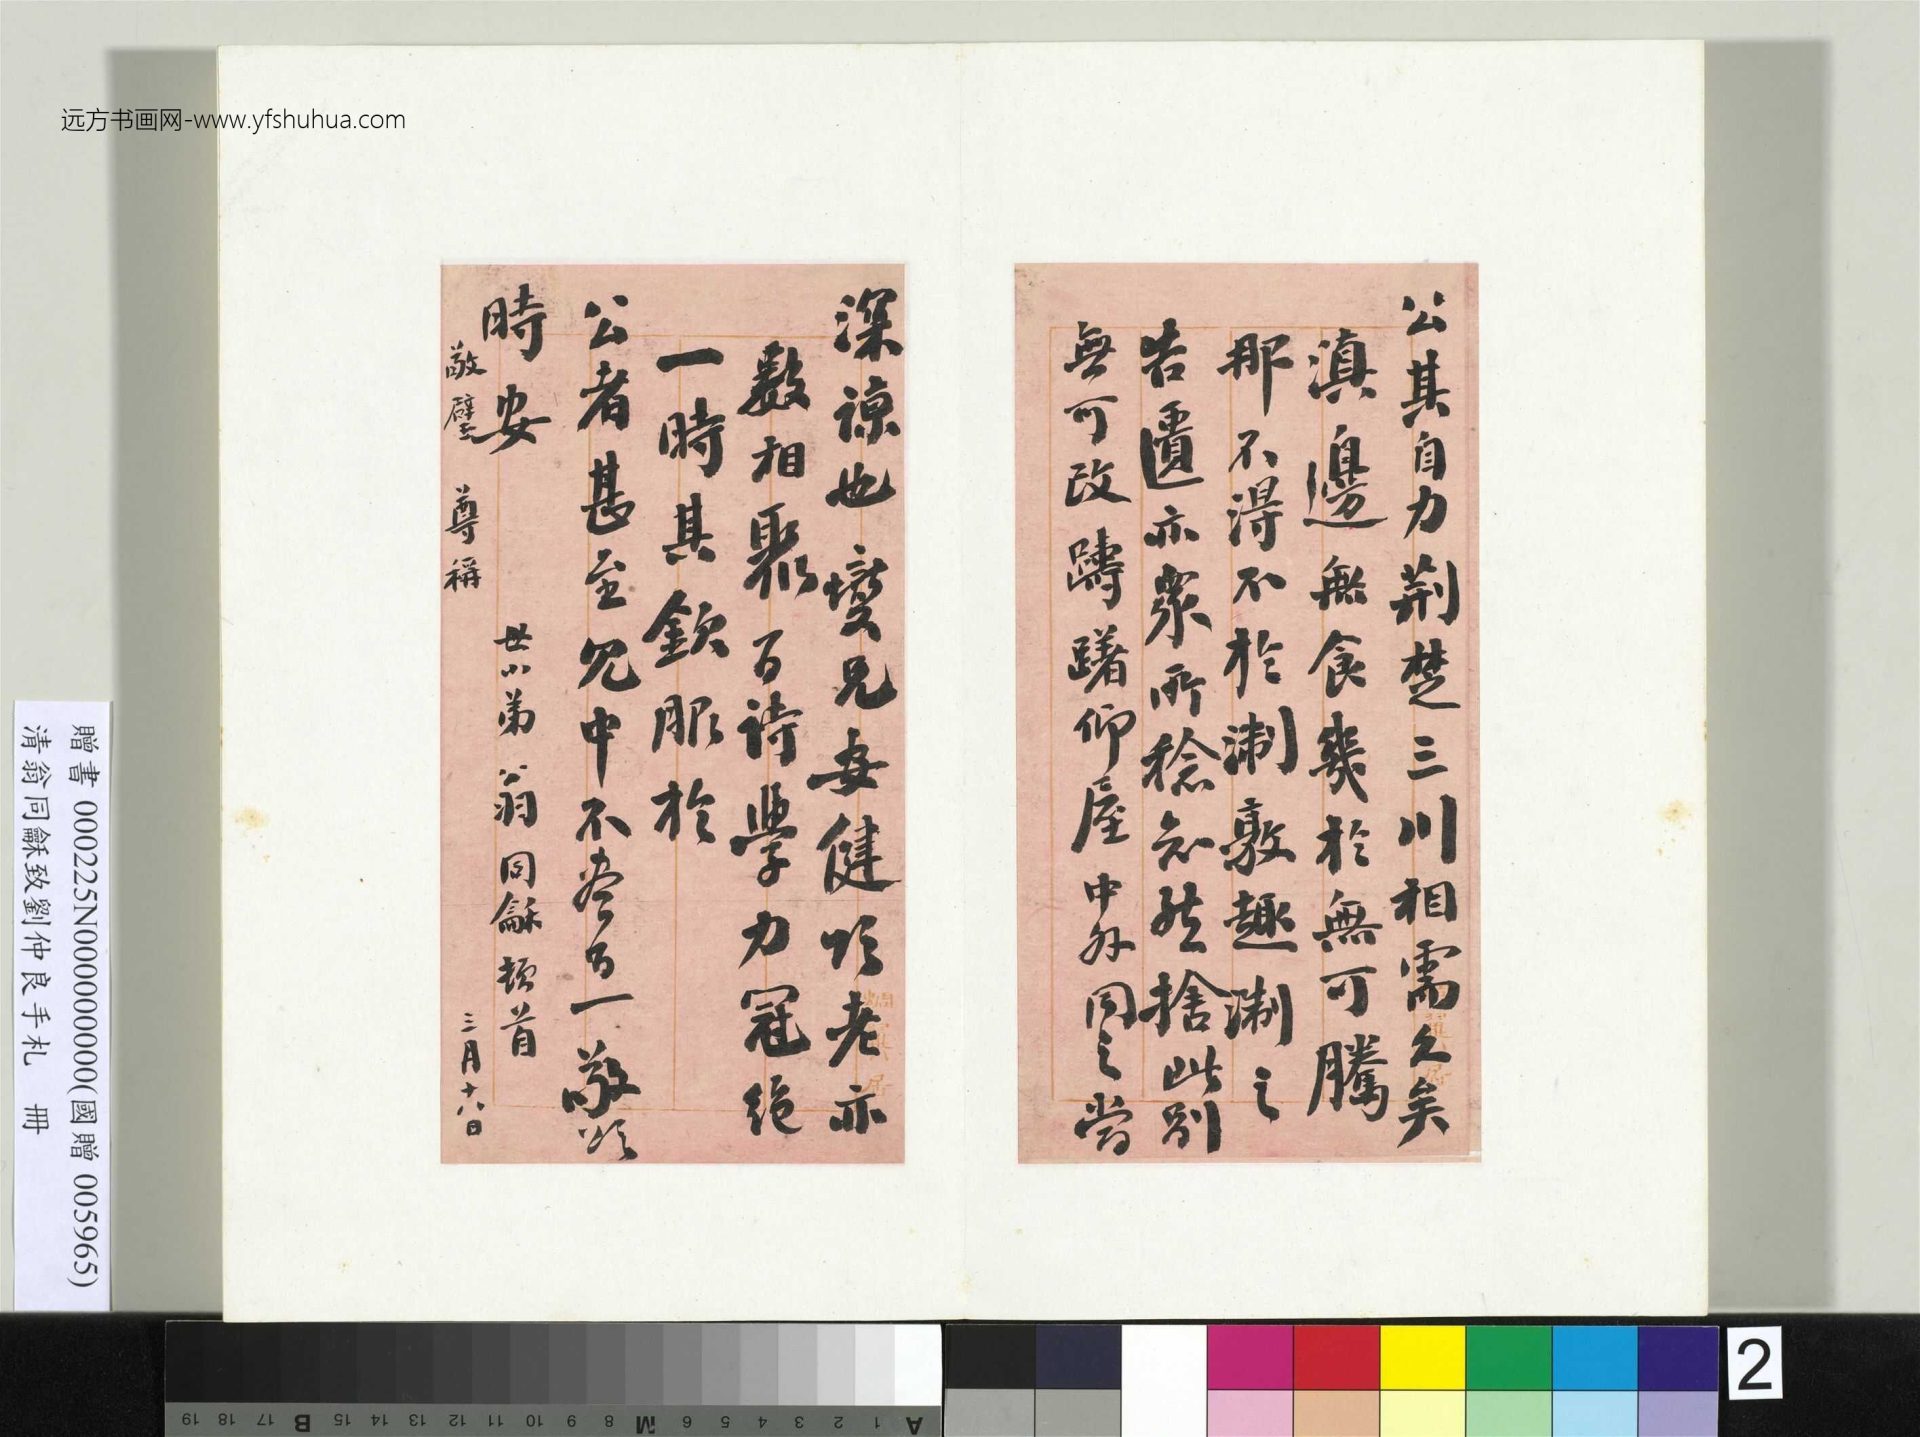 远方书画网-www.yfshuhua.com
公其自力荆楚三川相需久矣
滇邊無食幾於無可騰
那不得不於淛敦趣淛之
告匱亦眾所稔知然捨此別
無可改躊躇仰屋中外同之當
深諒也 燮兄安健頌老亦
數相聚 詩學力冠絶
一時其欽服於
公者甚至 中不盡百一敬頌
時安
世小弟 翁同龢頓首
敬璧 尊稱
三月十八日
贈書 000225N000000000(國贈 005965)
清翁同龢致劉仲良手札 冊
A 1 2 3 4 5 6 M 8 9 10 11 12 13 14 15 B 17 18 19
2